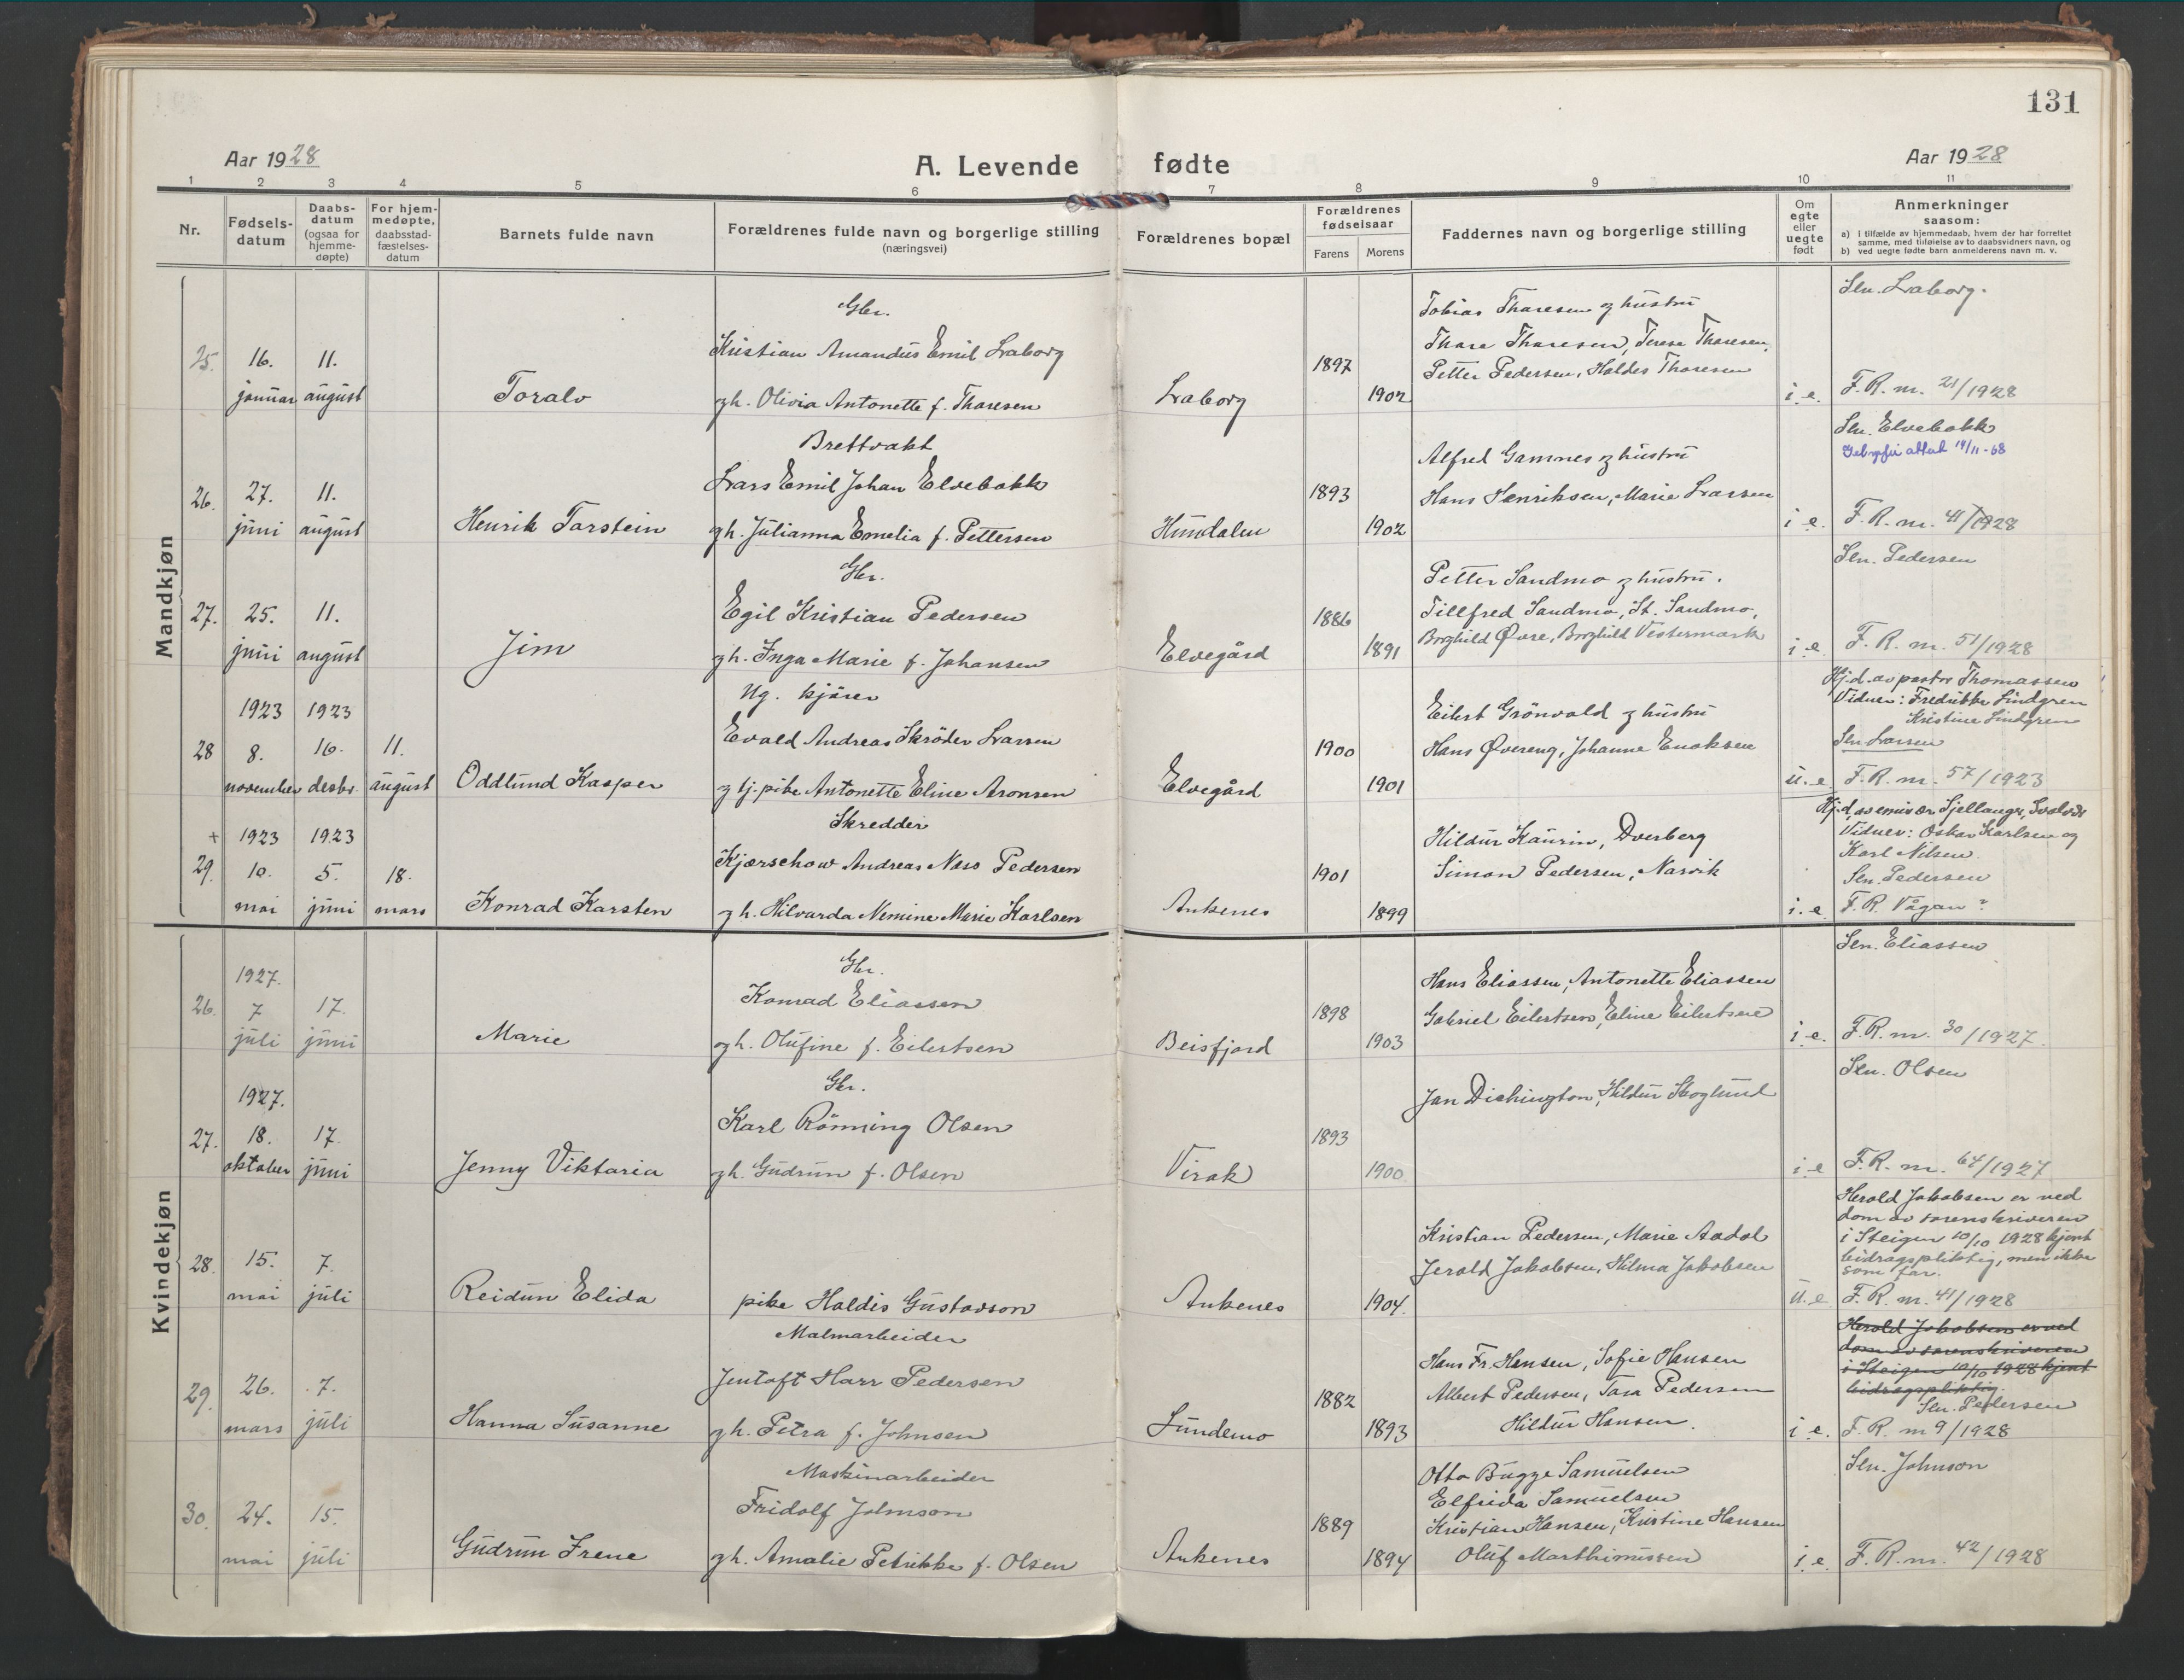 131
Aar 1928
A. Levende fødte
Aar 1928
1 2 3 4 5 6 7 8 9 10 11
Nr.
Fødsels-
datum
Daabs-
datum
(ogsaa for
hjemme-
døpte)
For hjem-
medøpte,
daabsstad-
fæstelses-
datum
Barnets fulde navn
Forældrenes fulde navn og borgerlige stilling
(næringsvei)
Forældrenes bopæl
Forældrenes
fødselsaar
Farens Morens
Faddernes navn og borgerlige stilling
Om
egte
eller
uegte
født
Anmerkninger
saasom:
a) i tilfælde av hjemmedaab, hvem der har forrettet
samme, med tilføielse av to daabsvidners navn, og
b) ved uegte fødte barn anmelderens navn m. v.
Mandkjøn
25. 16. januar
11. august
Toralv
Gbr.
Kristian Amandus Emil Laaborg
gh. Olivia Antonette f. Thoresen
Laaborg
1897
1902
Tobias Thoresen og hustru
Thore Thoresen, Terese Thoresen,
Petter Pedersen, Haldis Thoresen
i. e.
Sln. Laaborg.
F. R. nr. 21/1928
26. 27. juni
11. august
Henrik Torstein
Brettvakt
Lars Emil Johan Elvebakk
gh. Julianna Emelia f. Pettersen
Hundalen
1893
1902
Alfred Gamnes og hustru
Hans Henriksen, Marie Larsen
i e.
Sln. Elvebakk
attest 14/11-68
F. R. nr. 41/1928
27. 25. juni
11. august
Jim
Gbr.
Egil Kristian Pedersen
gh. Inga Marie f. Johansen
Elvegård
1886
1891
Petter Sandmo og hustru.
Tillfred Sandmo, St. Sandmo,
Borghild Øvre, Borghild Vestermark
i e.
Sln. Pedersen
F. R. nr. 51/1928
28 1923
8. november
1923
16. desbr.
11. august
Oddlund Kasper
Ug. kjører
Evald Andreas Skrøder Larsen
og tj. pike Antonette Eline Aronsen
Elvegård
1900
1901
Eilert Grönvold og hustru
Hans Øvereng, Johanne Enoksen
u. e
Hj.d. av pastor Thomassen
Vidner: Fredrikke Lindgren
Kristine Lindgren
Sln Larsen
F. R. nr. 57/1923
+
29. 1923
10. mai
1923
5. juni
18. mars
Konrad Karsten
Skredder
Kjærschow Andreas Næss Pedersen
gh. Hilvarda Nemine Marie Karlsen
Ankenes
1901
1899
Hildur Kaurin, Dverberg
Simon Pedersen, Narvik
i. e
Hj.d. av Svolvær
Vidner: Oskar Karlsen og
Karl Nilsen.
Sln. Pedersen
F. R. Vågan ?
Kvindekjøn
26. 1927.
7 juli
17. juni
Marie
Gbr.
Konrad Eliassen
gh. Olufine f. Eilertsen
Beisfjord
1898
1903
Hans Eliassen, Antonette Eliassen
Gabriel Eilertsen, Eline Eilertsen
i e.
Sln. Eliassen
F. R. nr. 30/1927.
27. 1927.
18. oktober
17. juni
Jenny Viktoria
Gbr.
Karl Rönning Olsen
gh. Gudrun f. Olsen
Virak
1893
1900
Jan Dichington, Hildur Skoglund
i e
Sln. Olsen
F. R. nr. 64/1927
28. 15. mai
7. juli
Reidun Elida
pike Haldis Gustavson
Ankenes
1904.
Kristian Pedersen, Marie Aadal
Jerold Jakobsen, Hilma Jakobsen
u. e
Herold Jakobsen er ved
dom av sorenskriveren
i Steigen 10/10 1928 kjent
bidragspliktig, men ikke
som far.
F. R. nr. 41/1928
29. 26. mars
7. juli
Hanna Susanne
Malmarbeider
Jentoft Harr Pedersen
gh. Petra f. Johnsen
Sundemo
1882
1893
Hans Fr. Hansen, Sofie Hansen
Albert Pedersen, Tora Pedersen
Hildur Hansen.
i e.
Herold Jakobsen er ved
dom av sorenskriveren
i Steigen 10/10 1928 kjent
bidragspliktig.
Sln. Pedersen
F. R. nr 9/1928
30. 24. mai
15. juli
Gudrun Irene
Maskinarbeider
Fridolf Johnson
gh. Amalie Petrikke f. Olsen
Ankenes
1889
1894
Otto Bugge Samuelsen
Elfrida Samuelsen
Kristian Hansen, Kristine Hansen
Oluf Marthinussen
i. e.
Sln. Johnson
F. R. nr. 42/1928